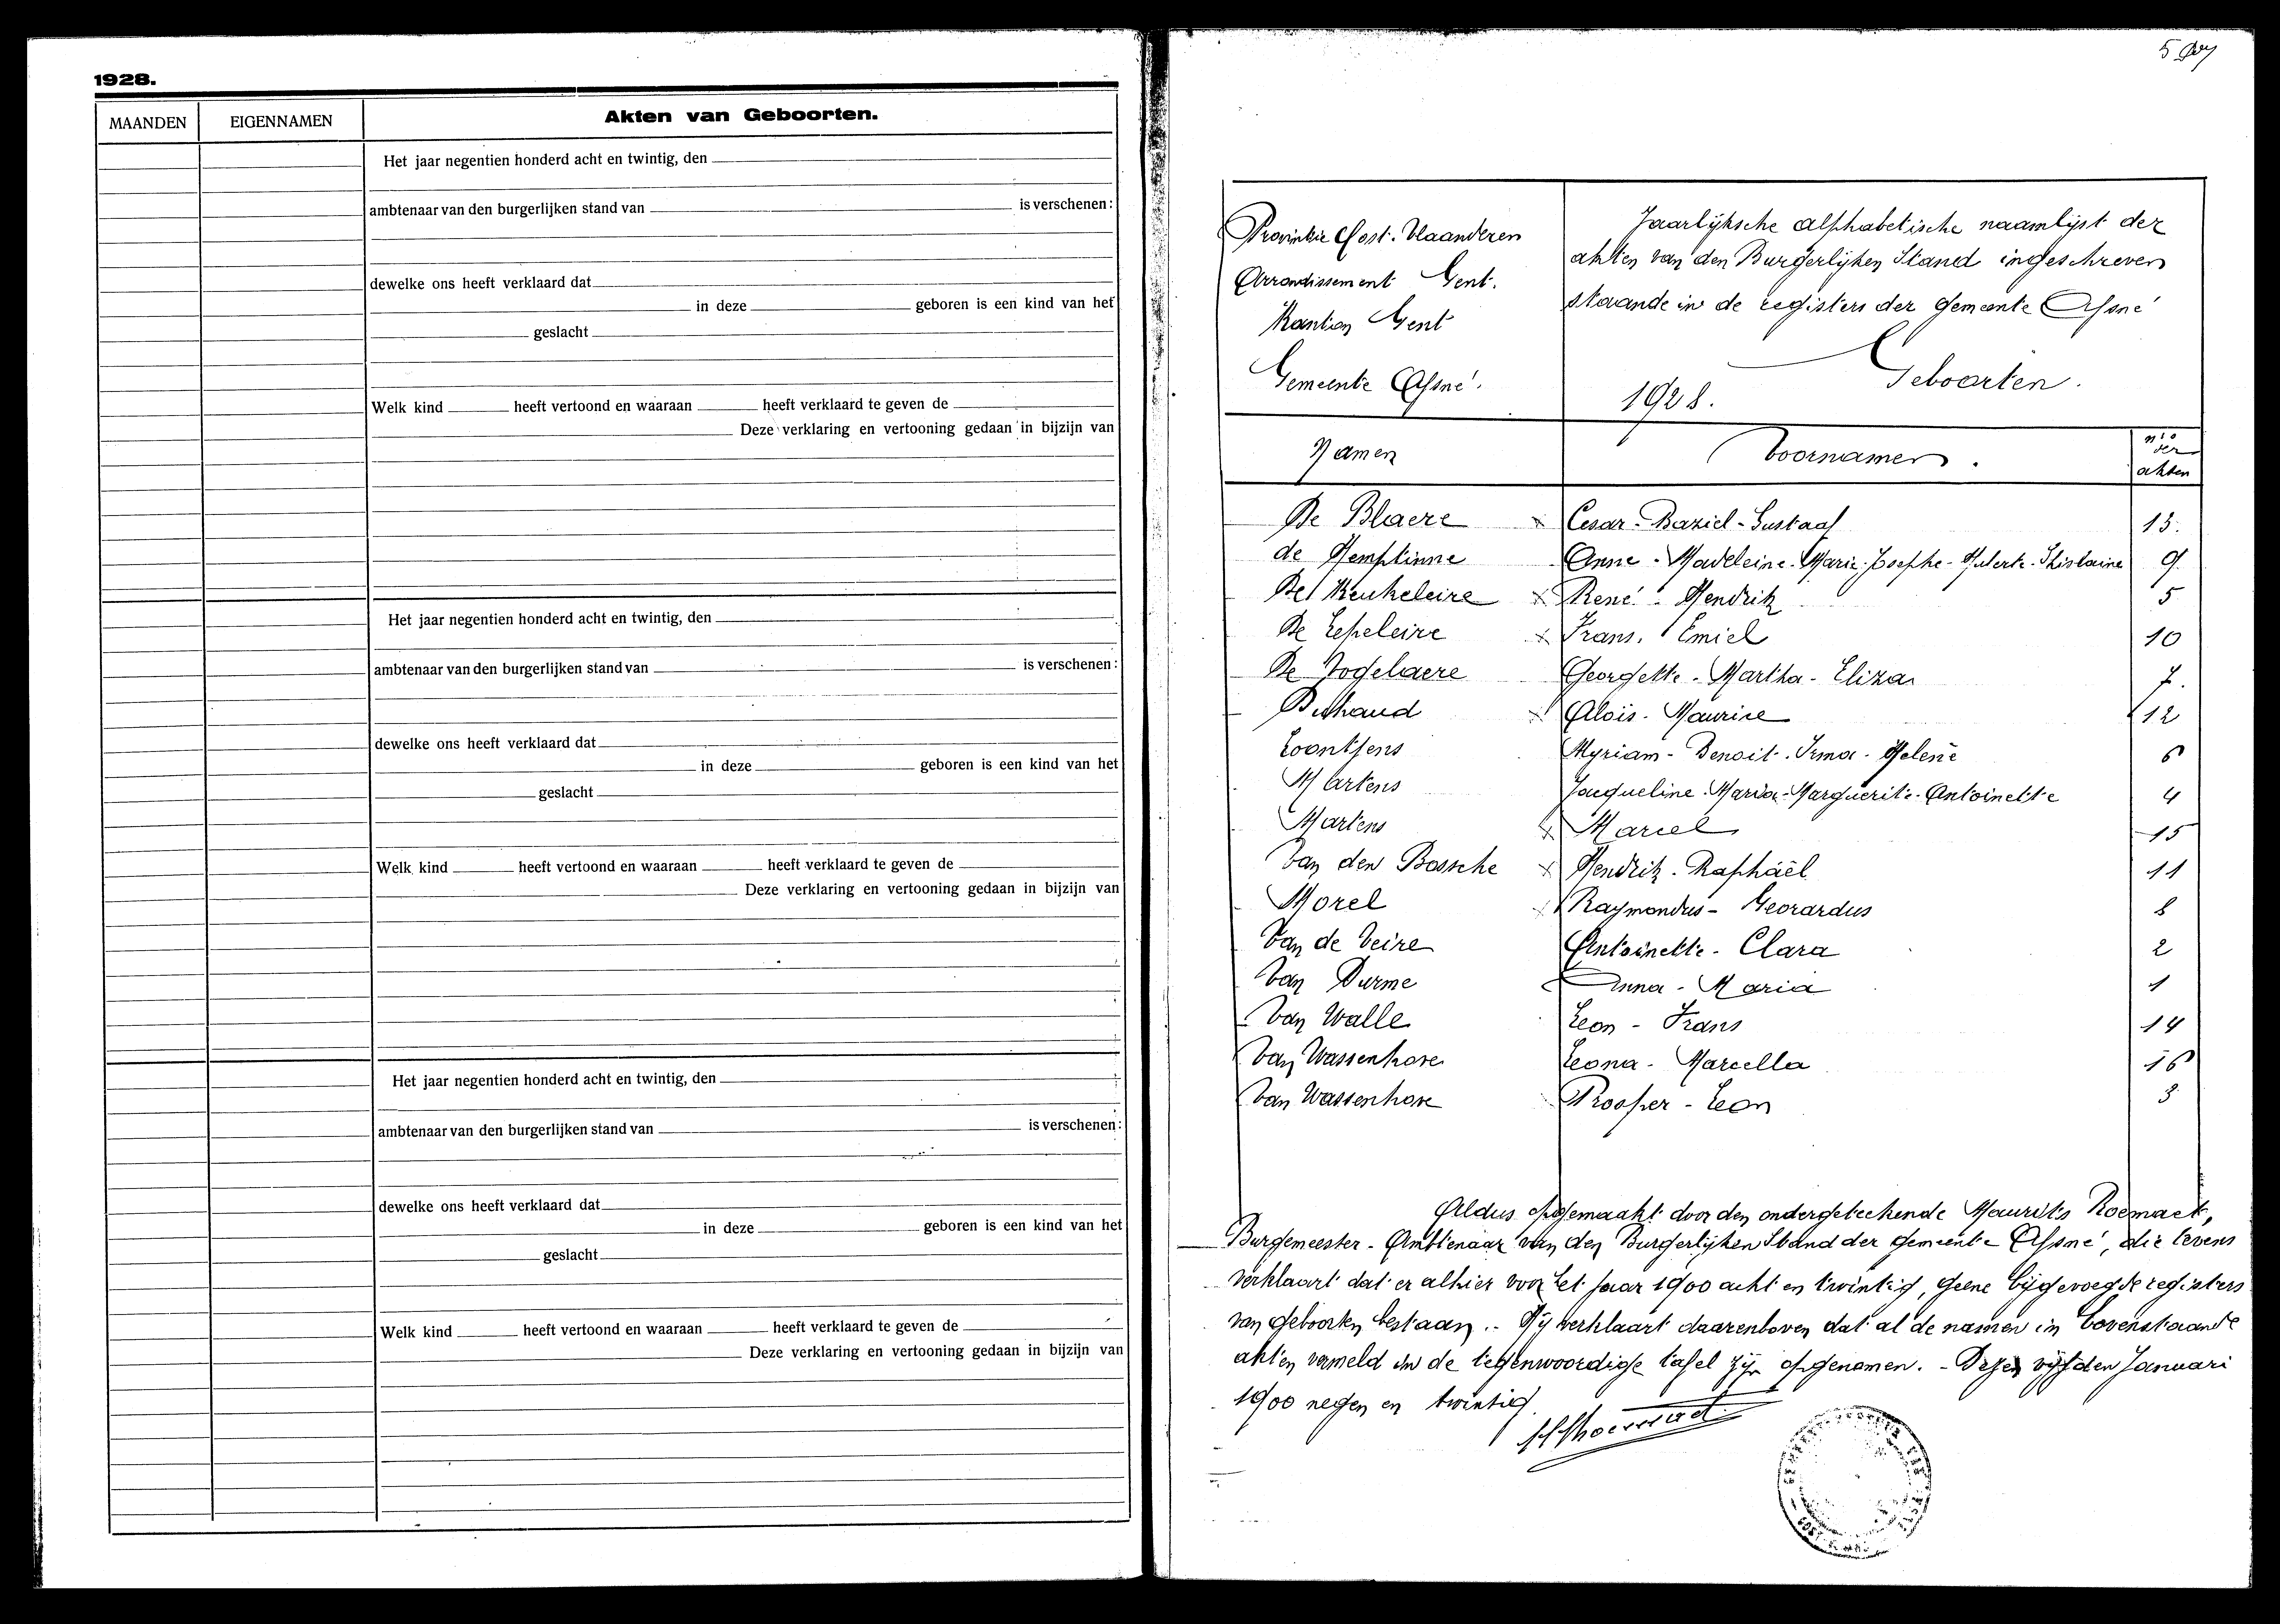 1928.
MAANDEN EIGENNAMEN Akten van Geboorten.
Het jaar negentien honderd acht en twintig, den
ambtenaar van den burgerlijken stand van is verschenen:
dewelke ons heeft verklaard dat
in deze geboren is een kind van het
geslacht
Welk kind heeft vertoond en waaraan heeft verklaard te geven de
Deze verklaring en vertooning gedaan in bijzijn van
Het jaar negentien honderd acht en twintig, den
ambtenaar van den burgerlijken stand van is verschenen:
dewelke ons heeft verklaard dat
in deze geboren is een kind van het
geslacht
Welk kind heeft vertoond en waaraan heeft verklaard te geven de
Deze verklaring en vertooning gedaan in bijzijn van
Het jaar negentien honderd acht en twintig, den
ambtenaar van den burgerlijken stand van is verschenen:
dewelke ons heeft verklaard dat
in deze geboren is een kind van het
geslacht
Welk kind heeft vertoond en waaraan heeft verklaard te geven de
Deze verklaring en vertooning gedaan in bijzijn van
5
Provintie Oost-Vlaanderen
Arrondissement Gent.
Kanton Gent
Gemeente Afsné.
Jaarlijksche alphabetische naamlijst der
akten van den Burgerlijken Stand ingeschreven
staande in de registers der gemeente Afsné
Geboorten.
1928.
Namen Voornamen. nrs der akten
De Blaere Cesar-Baziel-Gustaaf 13.
de Hemptinne Anne-Madeleine-Marie-Josephe-Huberte-Ghislaine 9
De Keukeleire René-Hendrik 5
De Lepeleire Frans. Emiel 10
De Vogelaere Georgette-Martha-Eliza 7.
Alois-Maurice 12
Loontjens Myriam-Benoit-Irma-Helene 6
Martens Jacqueline-Maria-Marguerite-Antoinette 4
Martens Marcel 15
Van den Bossche Hendrik-Raphaël 11
Morel Raymondus-Georardus 8
Van de Veire Antoinette-Clara 2
Van Durme Anna-Maria 1
Van Walle Leon-Frans 14
Van Wassenhove Leona-Marcella 16
Van Wassenhove Prosper-Leon 3
Aldus opgemaakt door den ondergeteekende Maurits
Burgemeester-Ambtenaar van den Burgerlijken Stand der gemeente Afsné, die tevens
verklaart dat er alhier voor het jaar 1900 acht en twintig, geene bijgevoegde registers
van geboorten bestaan.- Hij verklaart daarenboven dat al de namen in bovenstaande
akten vermeld in de tegenwoordige tafel zijn opgenomen.- Dezen vijfden Januari
1900 negen en twintig